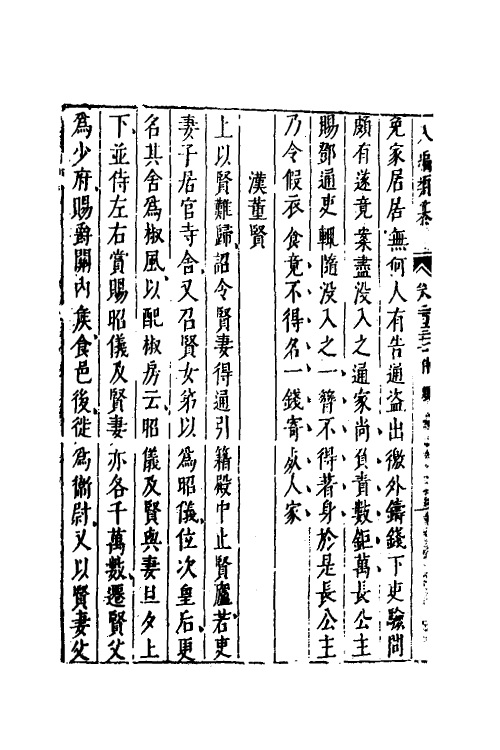 八編類纂
免家居居無何人有告通盜出徼外鑄錢下吏驗問
頗有遂竟案盡没入之通家尚負責數鉅萬長公主
賜鄧通吏輒隨没入之一簪不得著身於是長公主
乃令假衣食竟不得名一錢寄死人家
漢董賢
上以賢難歸詔令賢妻得通引籍殿中止賢廬若吏
妻子居官寺舍又召賢女弟以爲昭儀位次皇后更
名其舍爲椒風以配椒房云昭儀及賢與妻旦夕上
下並侍左右賞賜昭儀及賢妻亦各千萬數遷賢父
爲少府賜爵關内矦食邑後徙爲衞尉又以賢妻父